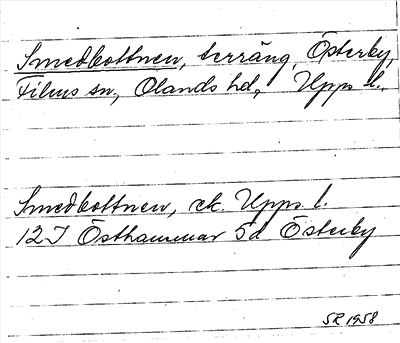 Smedbottnen, terräng, Österby,
Films sn, Olands hd, Upps l.
Smedbottnen, ek. Upps. l.
12I Östhammar 5d Österby
SR 1958